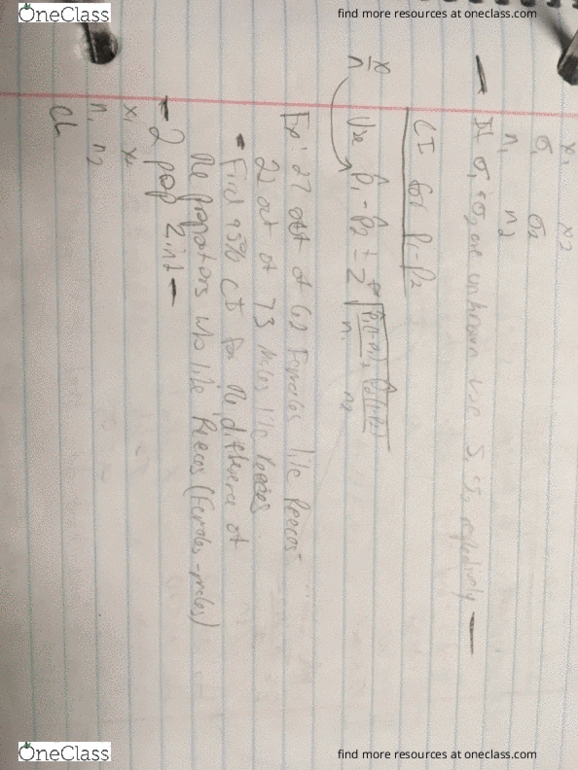 OneClass
find more resources at oneclass.com
x₁ x₂
σ₁ σ₂
n₁ n₂
- If σ₁ + σ₂ are unknown use S₁ S₂, respectively -
CI for p₁-p₂
x/n Use p̂₁ - p̂₂ ± z* √(p̂₁(1-p̂₁)/n₁ + p̂₂(1-p̂₂)/n₂)
Ex: 27 out of 62 Females like Reeces
22 out of 73 males like Reeces
• Find 95% CI for the difference of
the proportions who like Reeces (Females-males)
- 2 pop Z int -
x₁ x₂
n₁ n₂
CL
OneClass
find more resources at oneclass.com